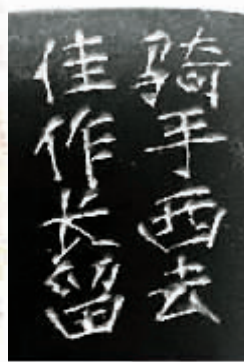 骑手西去
佳作长留